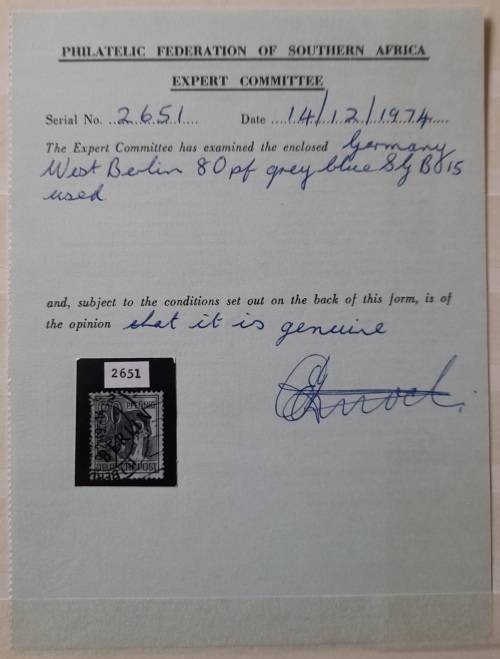 PHILATELIC FEDERATION OF SOUTHERN AFRICA
EXPERT COMMITTEE
Serial No. ..2651.... Date ....14/12/1974....
The Expert Committee has examined the enclosed Germany
West Berlin 80 pf grey blue SG B 15
used
and, subject to the conditions set out on the back of this form, is of
the opinion that it is genuine
2651
PFENNIG
BERLIN
POST